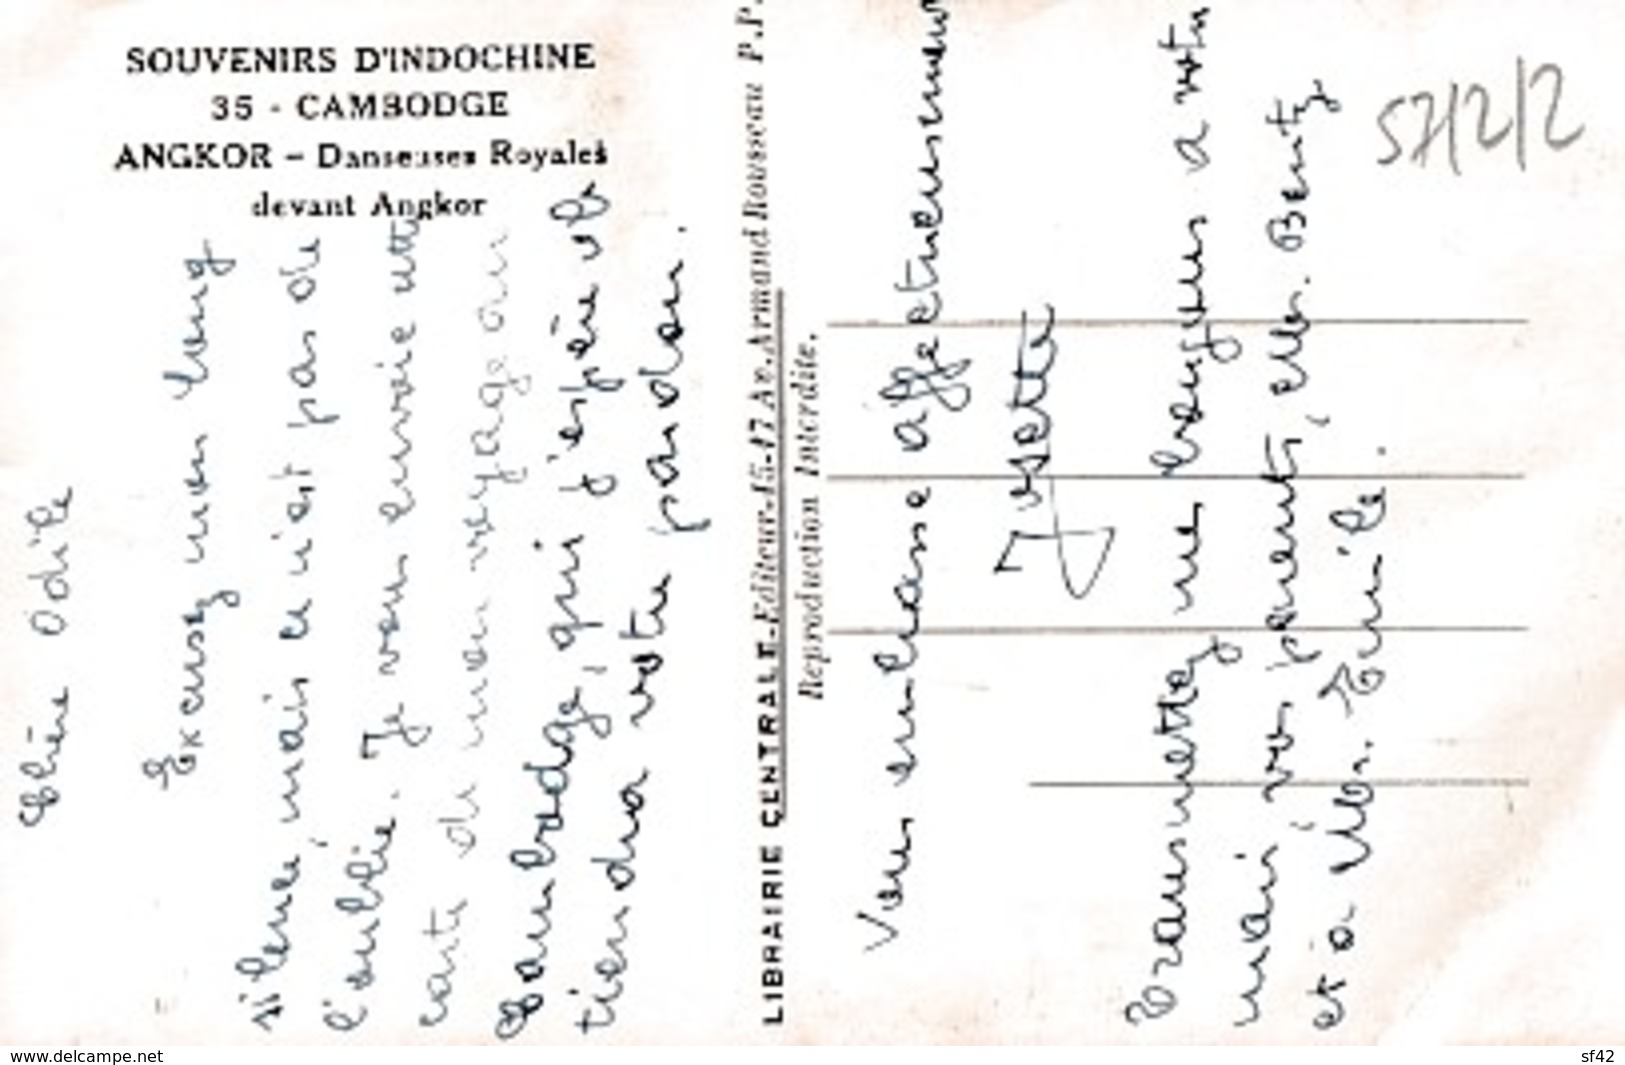 SOUVENIRS D'INDOCHINE
35 - CAMBODGE
ANGKOR - Danseuses Royales
devant Angkor
Chère Odile
Excusez mon long
silence, mais ce n'est pas de
l'oublie. Je vous envoie cette
carte de mon voyage au
Cambodge, qui j'espère ob
tiendra votre pardon.
LIBRAIRIE CENTRALE-Editeur-15-17 Av. Armand Rousseau P.P.
Reproduction Interdite.
Vous embrasse affectueusement
Josette
Transmettez mes bonjours a votre
mari, vos parents, Mr. Bentz
et a Mr. Emile.
57/2/2
www.delcampe.net
sf42